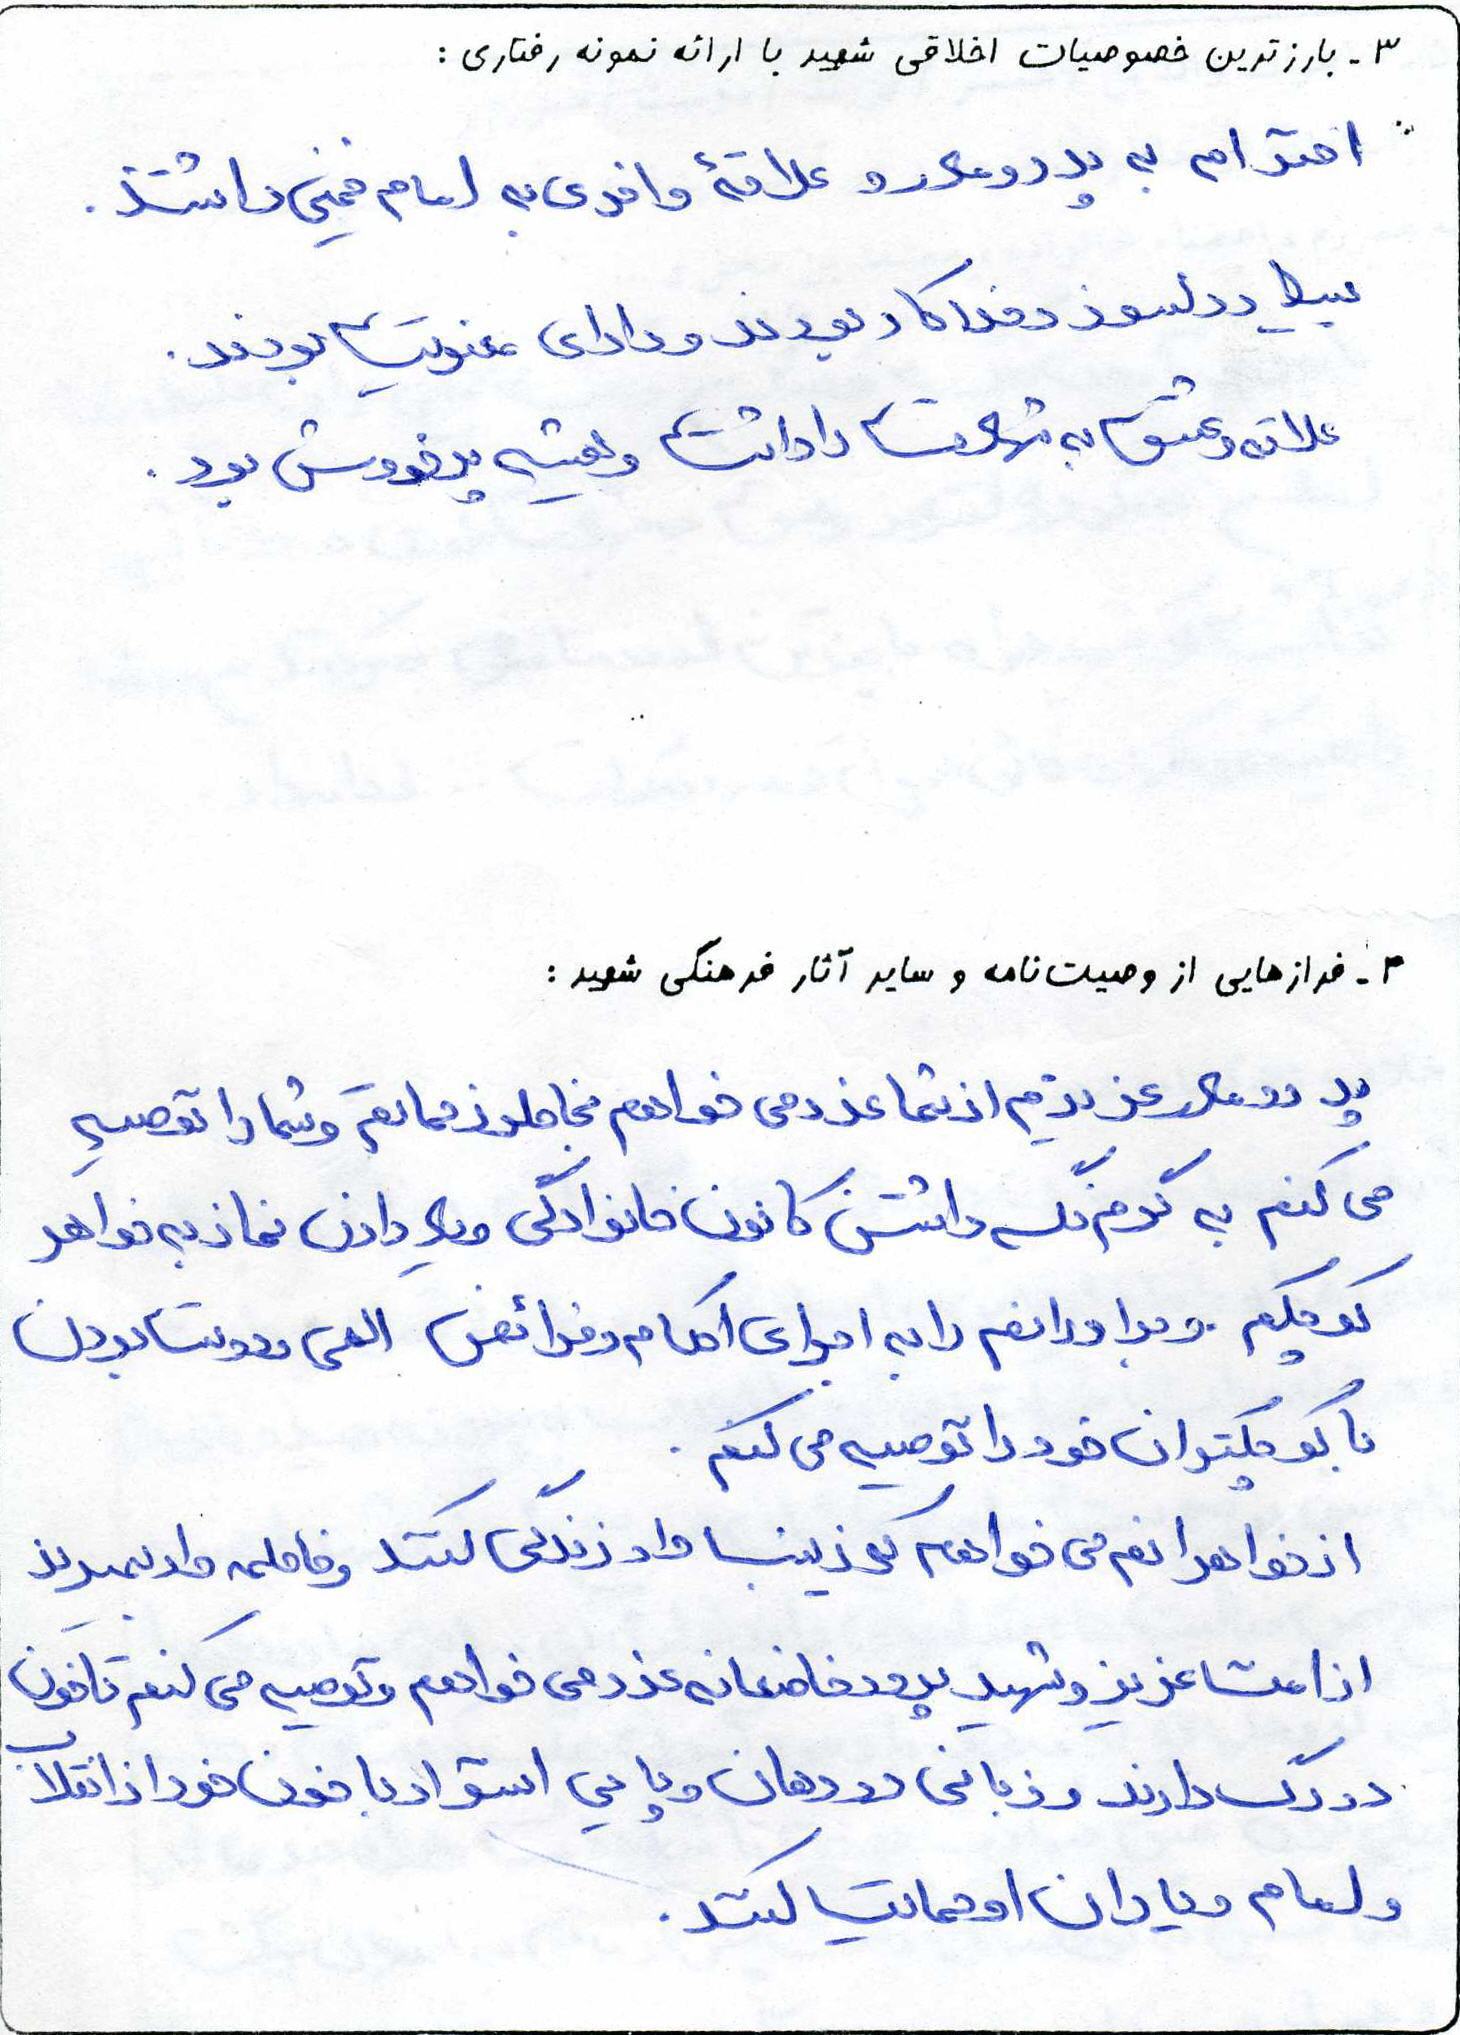 ۳- بارزترین خصوصیات اخلاقی شهید با ارائه نمونه رفتاری :
احترام به پدر و مادر و علاقهٔ وافری به امام خمینی داشتند .
بسیار دلسوز و فداکار بودند و دارای معنویت بودند .
علاقه و عشق به شهادت را داشت و همیشه پرخروش بود .
۴- فرازهایی از وصیت‌نامه و سایر آثار فرهنگی شهید :
پدر و مادر عزیزم از شما عذر می خواهم و شما را توصیه
می کنم به گرم نگه داشتن کانون خانوادگی و یاد دادن نماز به خواهر
کوچکم و برادرانم را به اجرای احکام و فرائض الهی و دوست بودن
با کوچکتران خود را توصیه می کنم .
از خواهرانم می خواهم که زینب وار زندگی کنند و فاطمه وار بمیرند
از امت عزیز و شهید پرور خاضعانه عذر می خواهم و توصیه می کنم تا خون
در رگ دارند و زبانی در دهان و پایی استوار با خون خود از انقلاب
و امام و یاران او حمایت کنند .